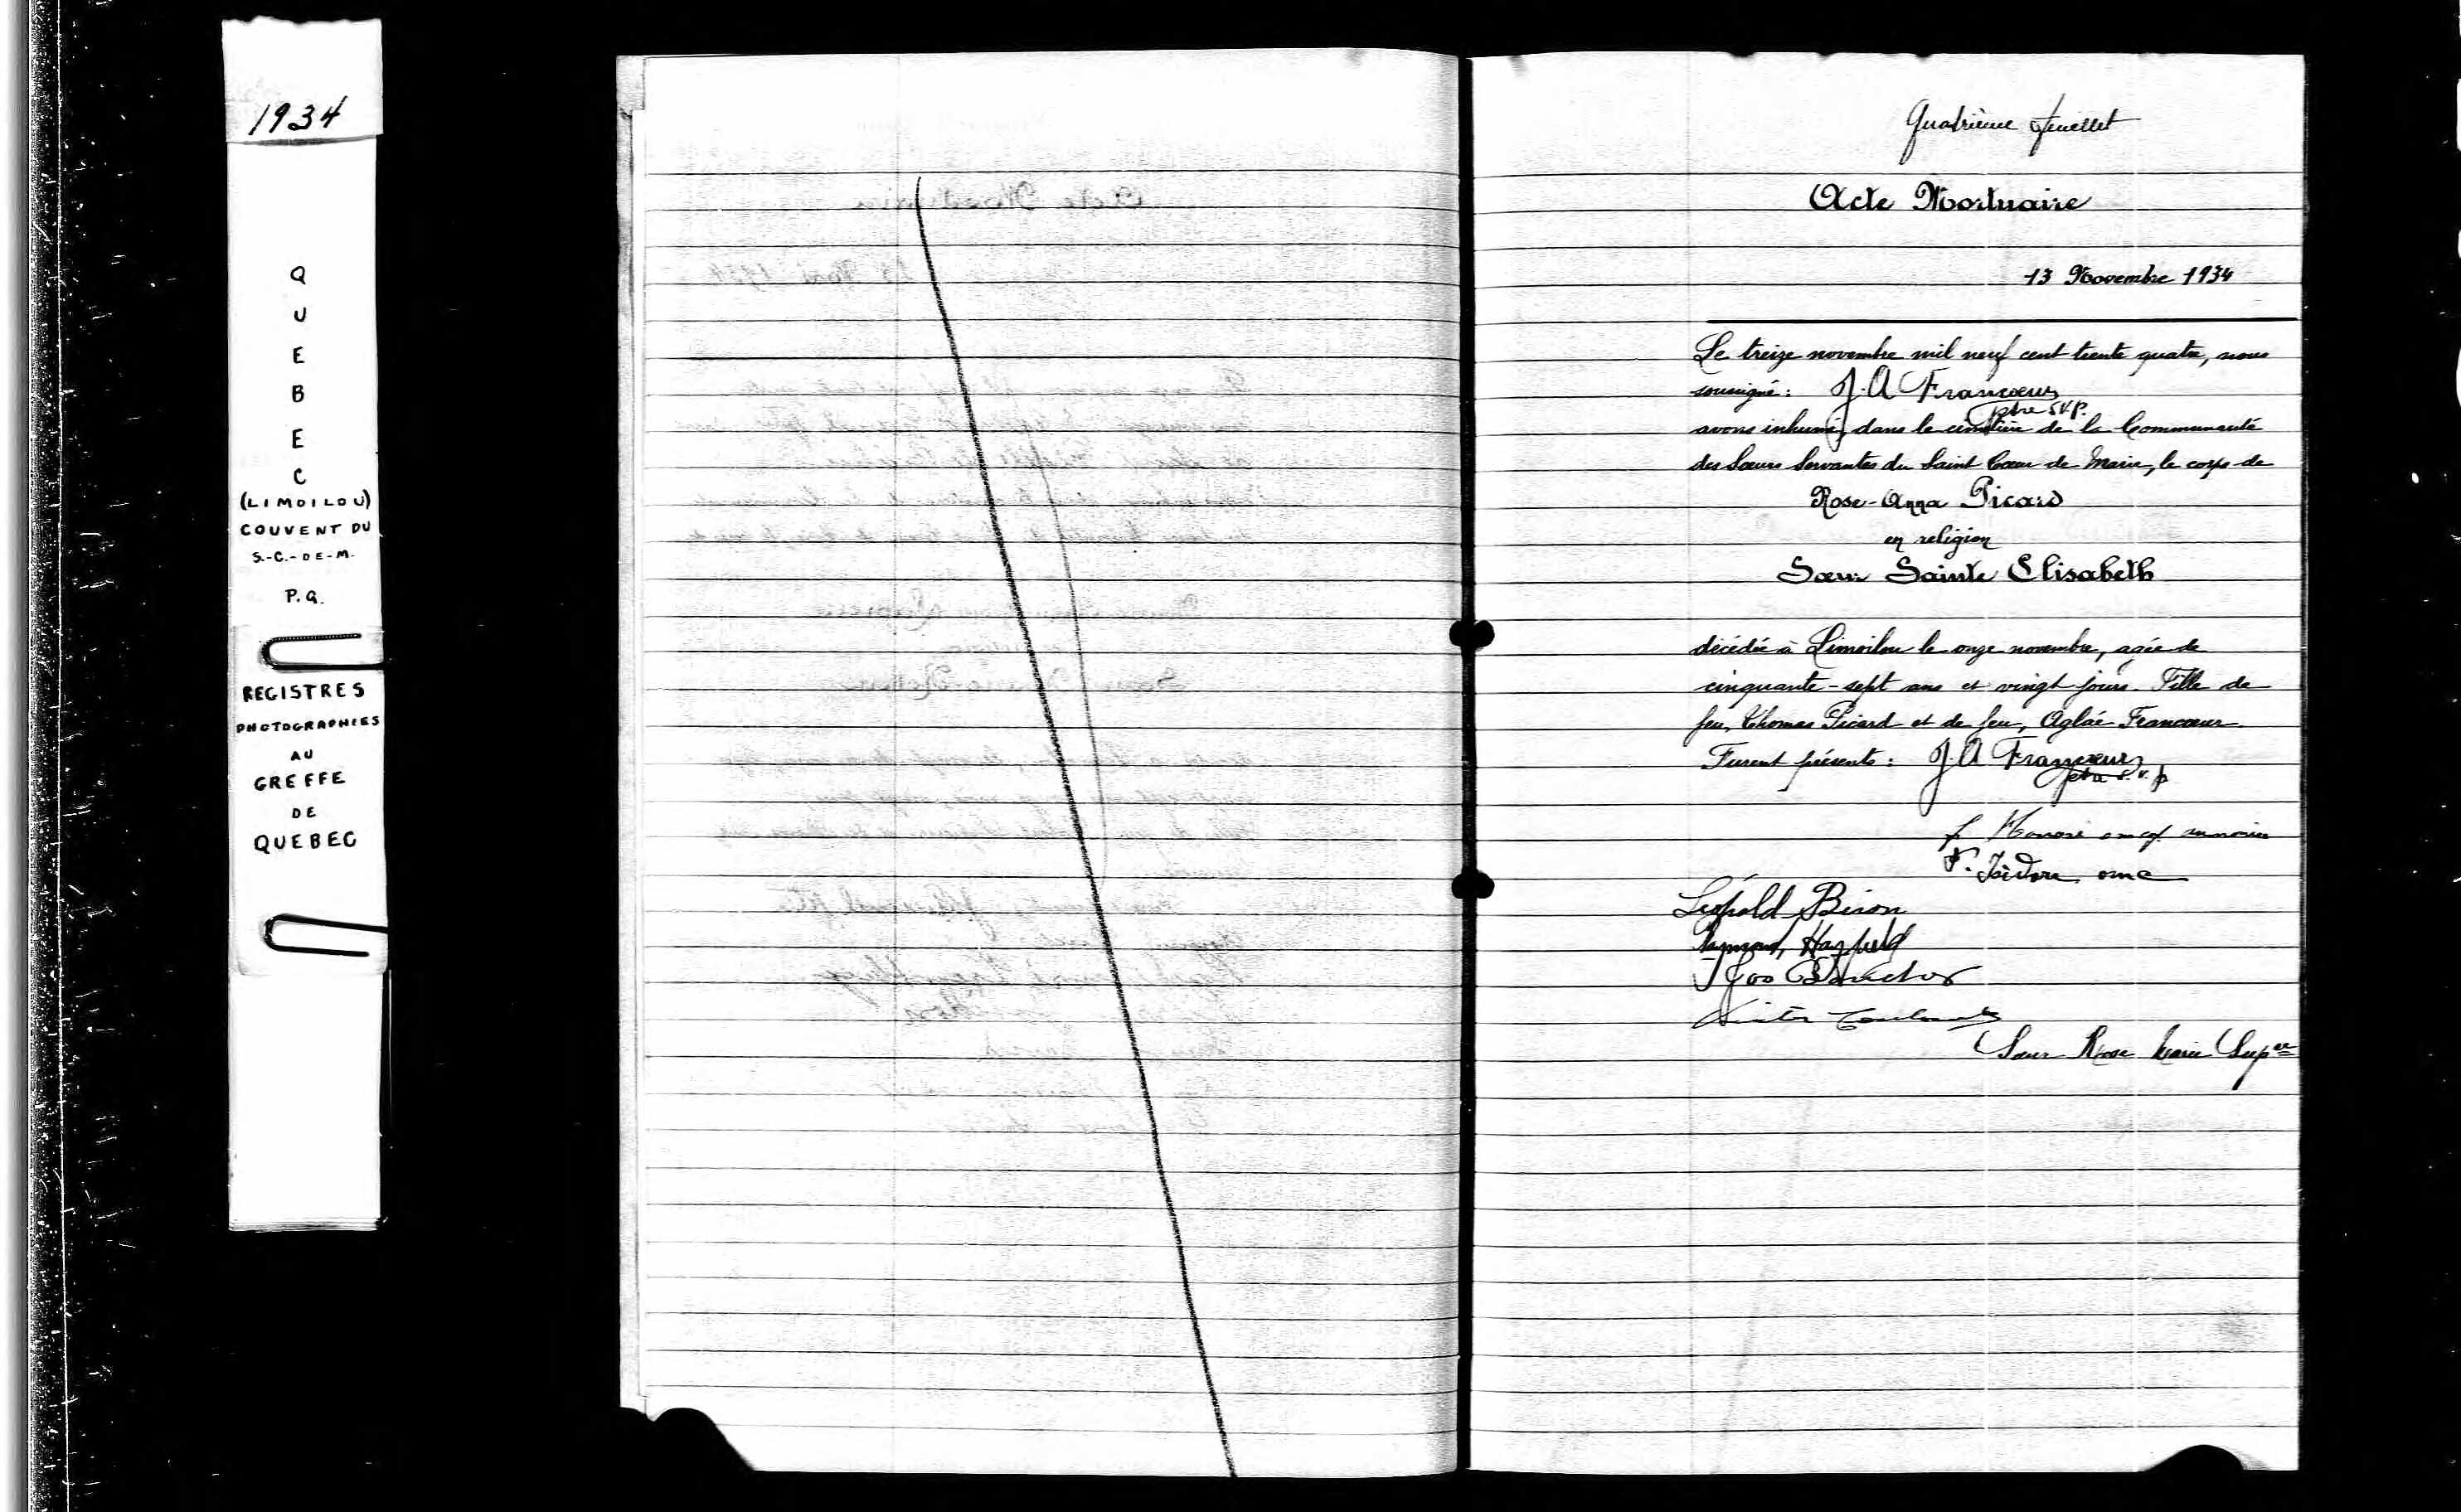 1934
QUEBEC
(LIMOILOU)
COUVENT DU
S.-C.-DE-M.
P.Q.
REGISTRES
PHOTOGRAPHIES
AU
GREFFE
DE
QUEBEC
Quatrième feuillet
Acte Mortuaire
13 Novembre 1934
Le treize novembre mil neuf cent trente quatre, nous
soussigné : J. A Francoeur
ptre S.V.P.
avons inhumé, dans le cimetière de la Communauté
des Soeurs Servantes du Saint Coeur de Marie, le corps de
Rose-Anna Picard
en religion
Soeur Sainte Elisabeth
décédée à Limoilou le onze novembre, agée de
cinquante-sept ans et vingt jours. Fille de
feu, Thomas Picard et de feu, Aglaé Francoeur.
Furent présents : J. A Francoeur
ptre S.V.P
f. Isidore, omc
Léopold Biron
Raymond Hayfield
Soeur Rose Marie Supre